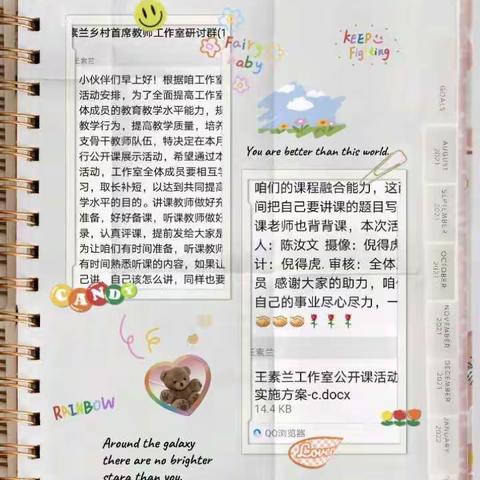 素兰乡村首席教师工作室研讨群(1
王素兰
小伙伴们早上好！根据咱工作室
活动安排，为了全面提高工作室
体成员的教育教学水平能力，规
教学行为，提高教学质量，培养
支骨干教师队伍，特决定在本月
行公开课展示活动，希望通过本
活动，工作室全体成员要相互学
习，取长补短，以达到共同提高
学水平的目的。讲课教师做好充
准备，好好备课，听课教师做好
录，认真评课，提前发给大家是
为让咱们有时间准备，听课教师
有时间熟悉听课的内容，如果让
己讲，自己该怎么讲，同样也要
CANDY
RAINBOW
Around the galaxy
there are no brighter
stara than you.
Fairy
baby
KEEP
Fighting
You are better than this world.
咱们的课程融合能力，这
间把自己要讲课的题目写
课老师也背背课，本次活
人：陈汝文 摄像：倪得虎
计：倪得虎. 审核：全体
员 感谢大家的助力，咱
自己的事业尽心尽力，一
王素兰
王素兰工作室公开课活动
实施方案-c.docx
14.4 KB
QQ浏览器
Lover
GOALS
AUGUST
2021
SEPTEMBER
2021
OCTOBER
2021
NOVEMBER
2021
DECEMBER
2021
JANUARY
2022